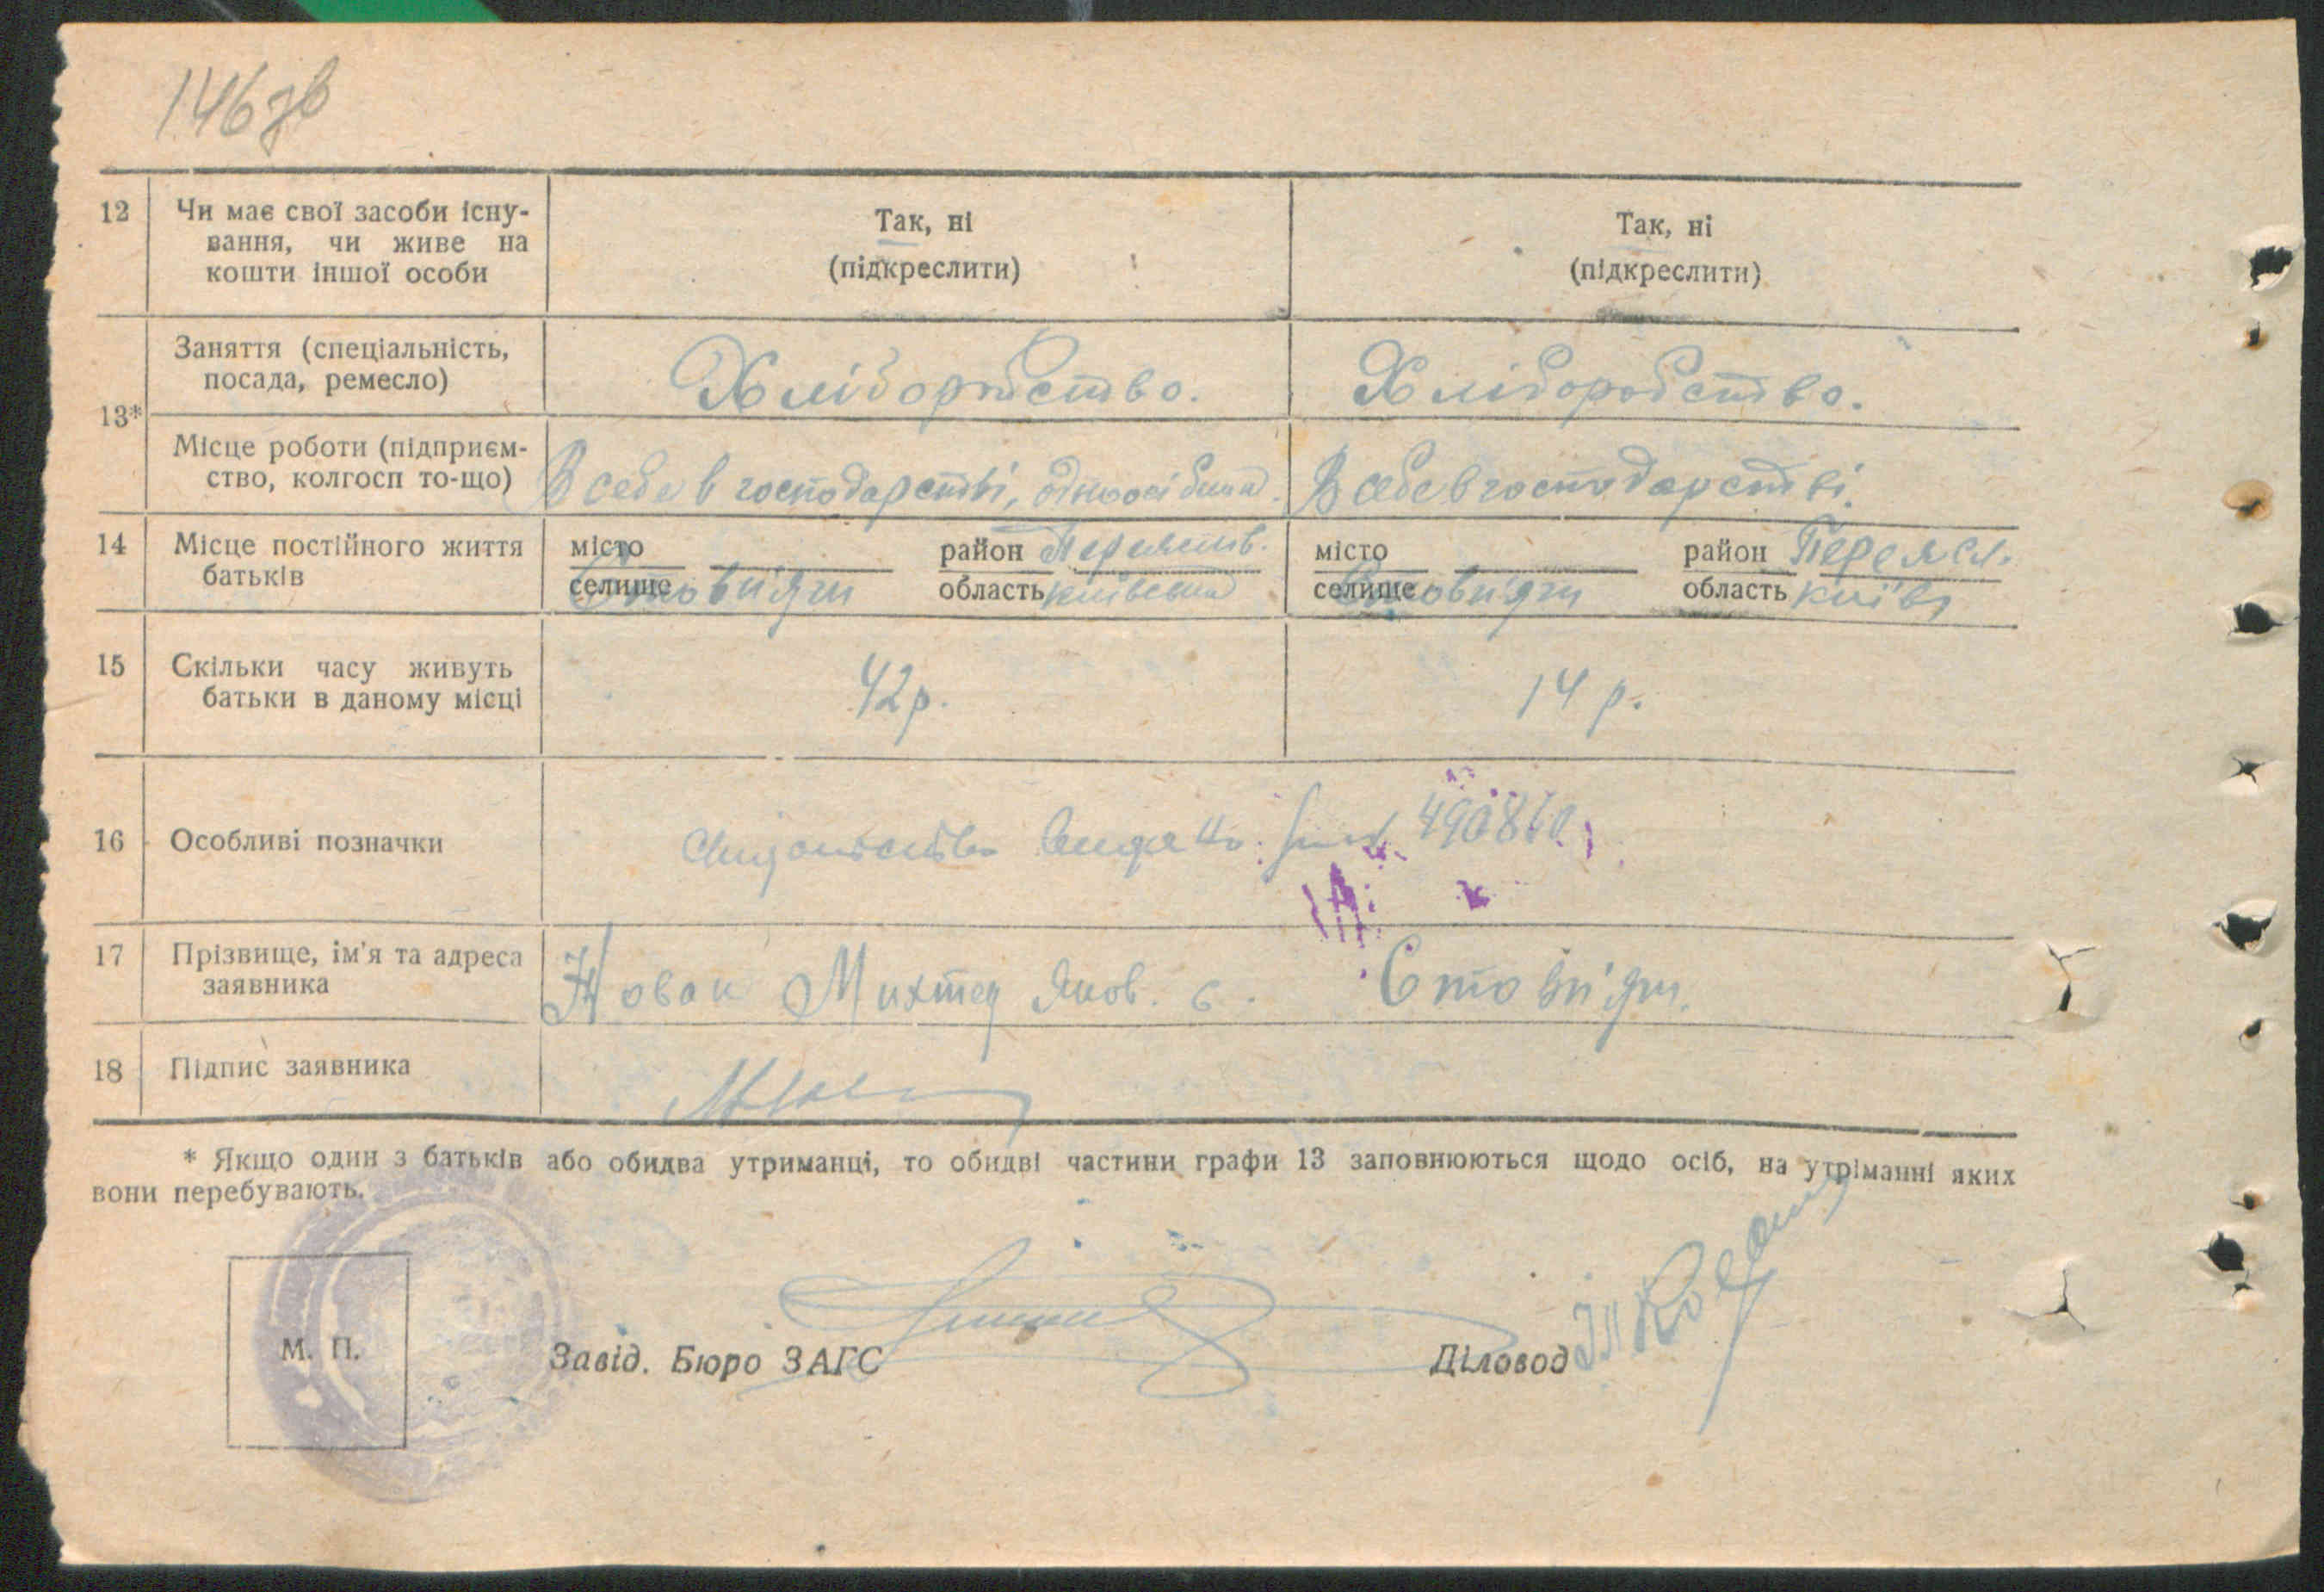 146 зв
12 Чи має свої засоби існу-
вання, чи живе на
кошти іншої особи
Так, ні
(підкреслити)
Так, ні
(підкреслити)
13*
Заняття (спеціальність,
посада, ремесло)
Хліборобство.
Хліборобство.
Місце роботи (підприєм-
ство, колгосп то-що)
В себе в господарстві,
В себе в господарстві.
14 Місце постійного життя
батьків
місто район
селище Стовп'яги область Київська
місто район Переясл.
селище Стовп'яги область Київ
15 Скільки часу живуть
батьки в даному місці
42 р.
14 р.
16 Особливі позначки
видано
17 Прізвище, ім'я та адреса
заявника
Новак Яков. с. Стовп'яги.
18 Підпис заявника
* Якщо один з батьків або обидва утриманці, то обидві частини графи 13 заповнюються щодо осіб, на утріманні яких
вони перебувають.
М. П.
Завід. Бюро ЗАГС
Діловод